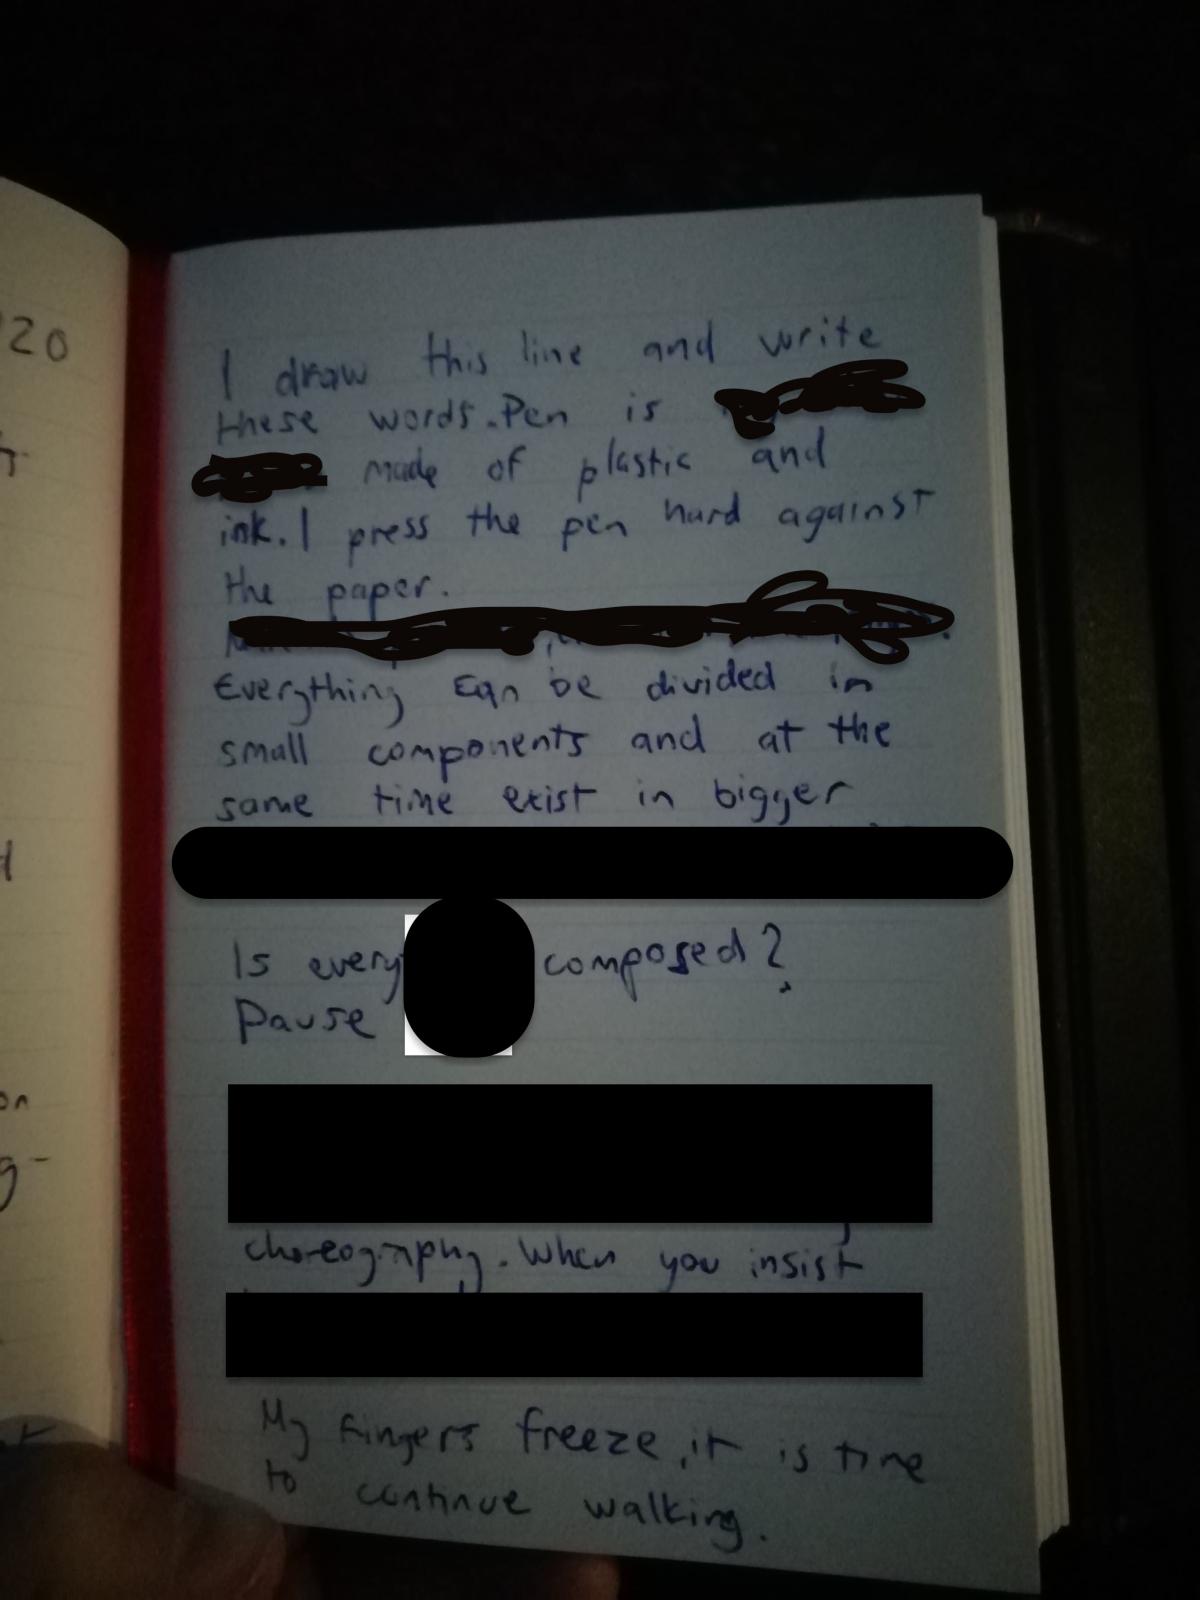 I draw this line and write
these words. Pen is
made of plastic and
ink. I press the pen hard against
the paper.
Everything can be divided in
small components and at the
same time exist in bigger
Is every composed?
Pause
choreography. When you insist
My fingers freeze, it is time
to continue walking.
20
on
g-